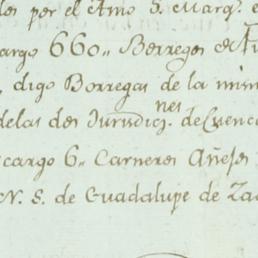 por el Amo S. Marq.s
cargo 660,, Borregos
digo Borregas de la mism
de las dos Jurisdic.nes de Cuenc
cargo 6,, Carneros Añejos
N. S. de Guadalupe de Za